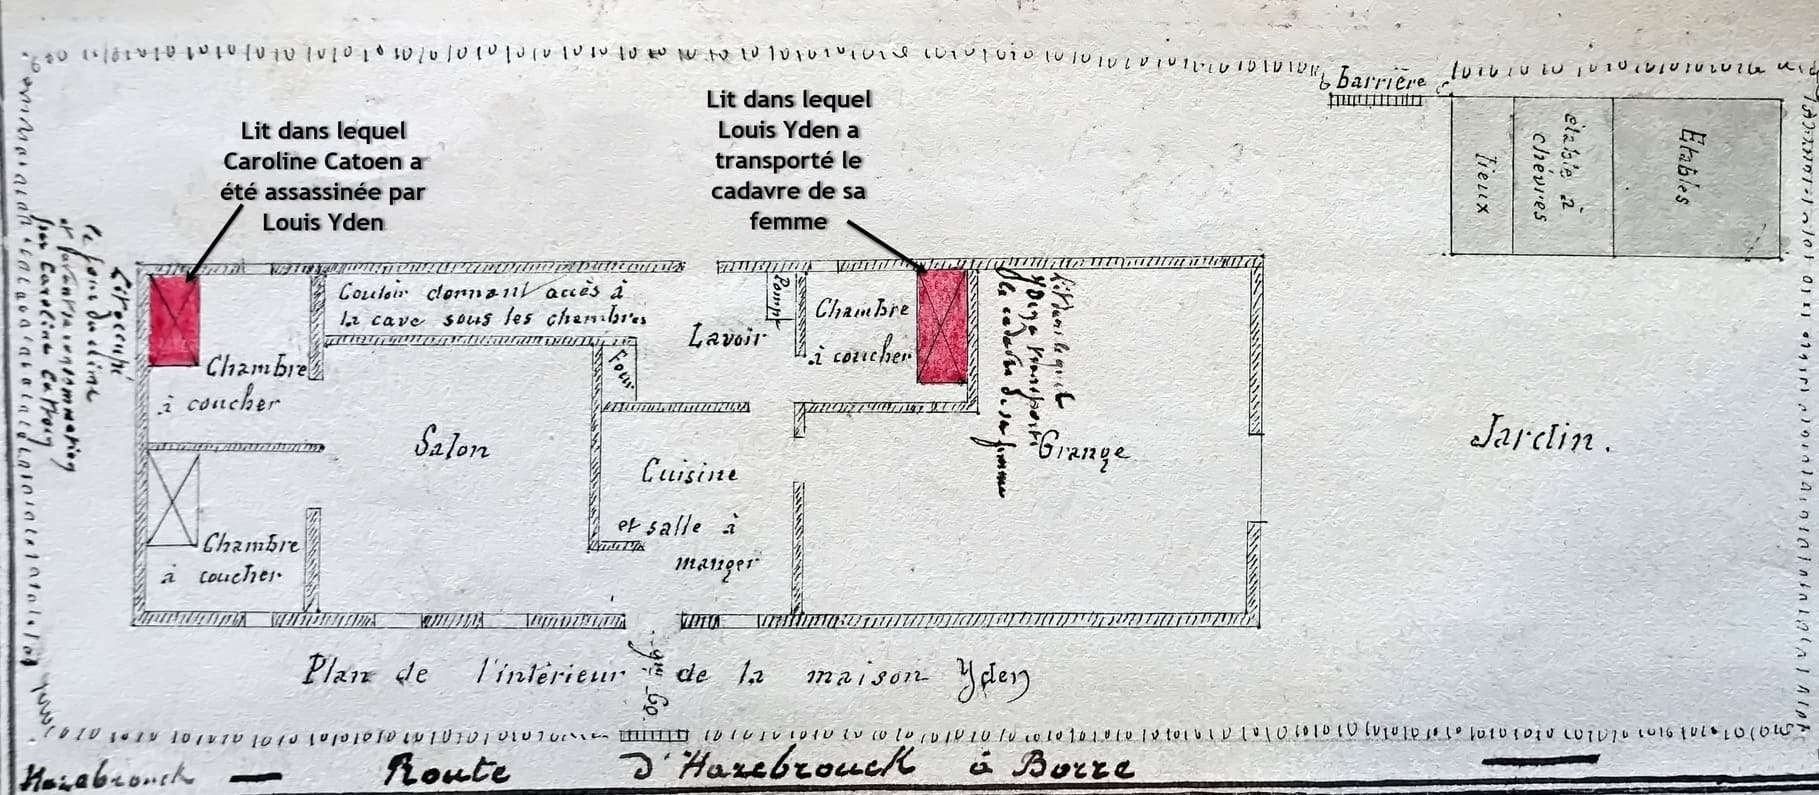 barrière
Lit dans lequel
Caroline Catoen a
été assassinée par
Louis Yden
Lit dans lequel
Louis Yden a
transporté le
cadavre de sa
femme
lieux
étable à
chèvres
Etables
Lit occupé
par Caroline Catoen
Couloir donnant accès à
la cave sous les chambres
Chambre
à coucher
Salon
Four
Lavoir
Pompe
Chambre
à coucher
Lit dans lequel
Yden a transporté
le cadavre de sa femme
Grange
Jardin.
Cuisine
et salle à
manger
Chambre
à coucher
Plan de l'intérieur de la maison Yden
Hazebrouck — Route d'Hazebrouck à Borre